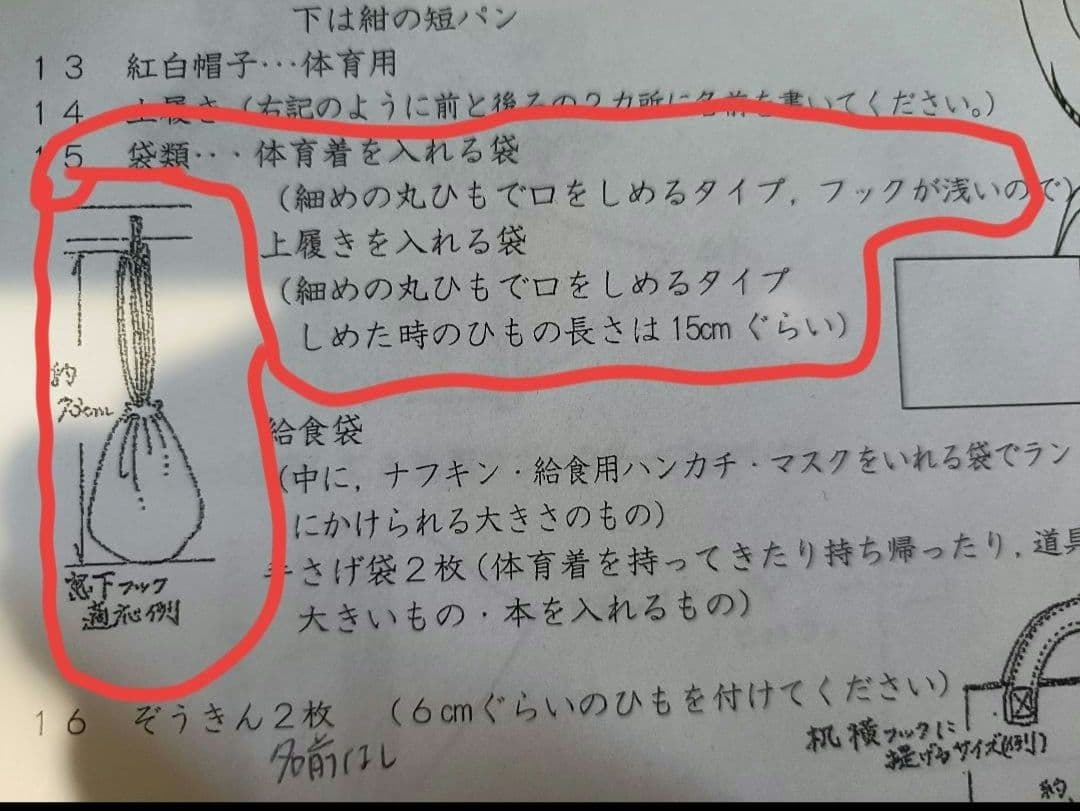 下は紺の短パン
13 紅白帽子･･･体育用
14 上履き（右記のように前と後ろの2カ所に名前を書いてください。）
15 袋類･･･体育着を入れる袋
（細めの丸ひもで口をしめるタイプ，フックが浅いので）
上履きを入れる袋
（細めの丸ひもで口をしめるタイプ
しめた時のひもの長さは15cmぐらい）
約
cm
窓下フック
適応例
給食袋
（中に，ナフキン・給食用ハンカチ・マスクをいれる袋でラン
にかけられる大きさのもの）
手さげ袋2枚（体育着を持ってきたり持ち帰ったり，道具
大きいもの・本を入れるもの）
16 ぞうきん2枚 （6cmぐらいのひもを付けてください）
名前なし
机横フックに
提げるサイズ(例)
約